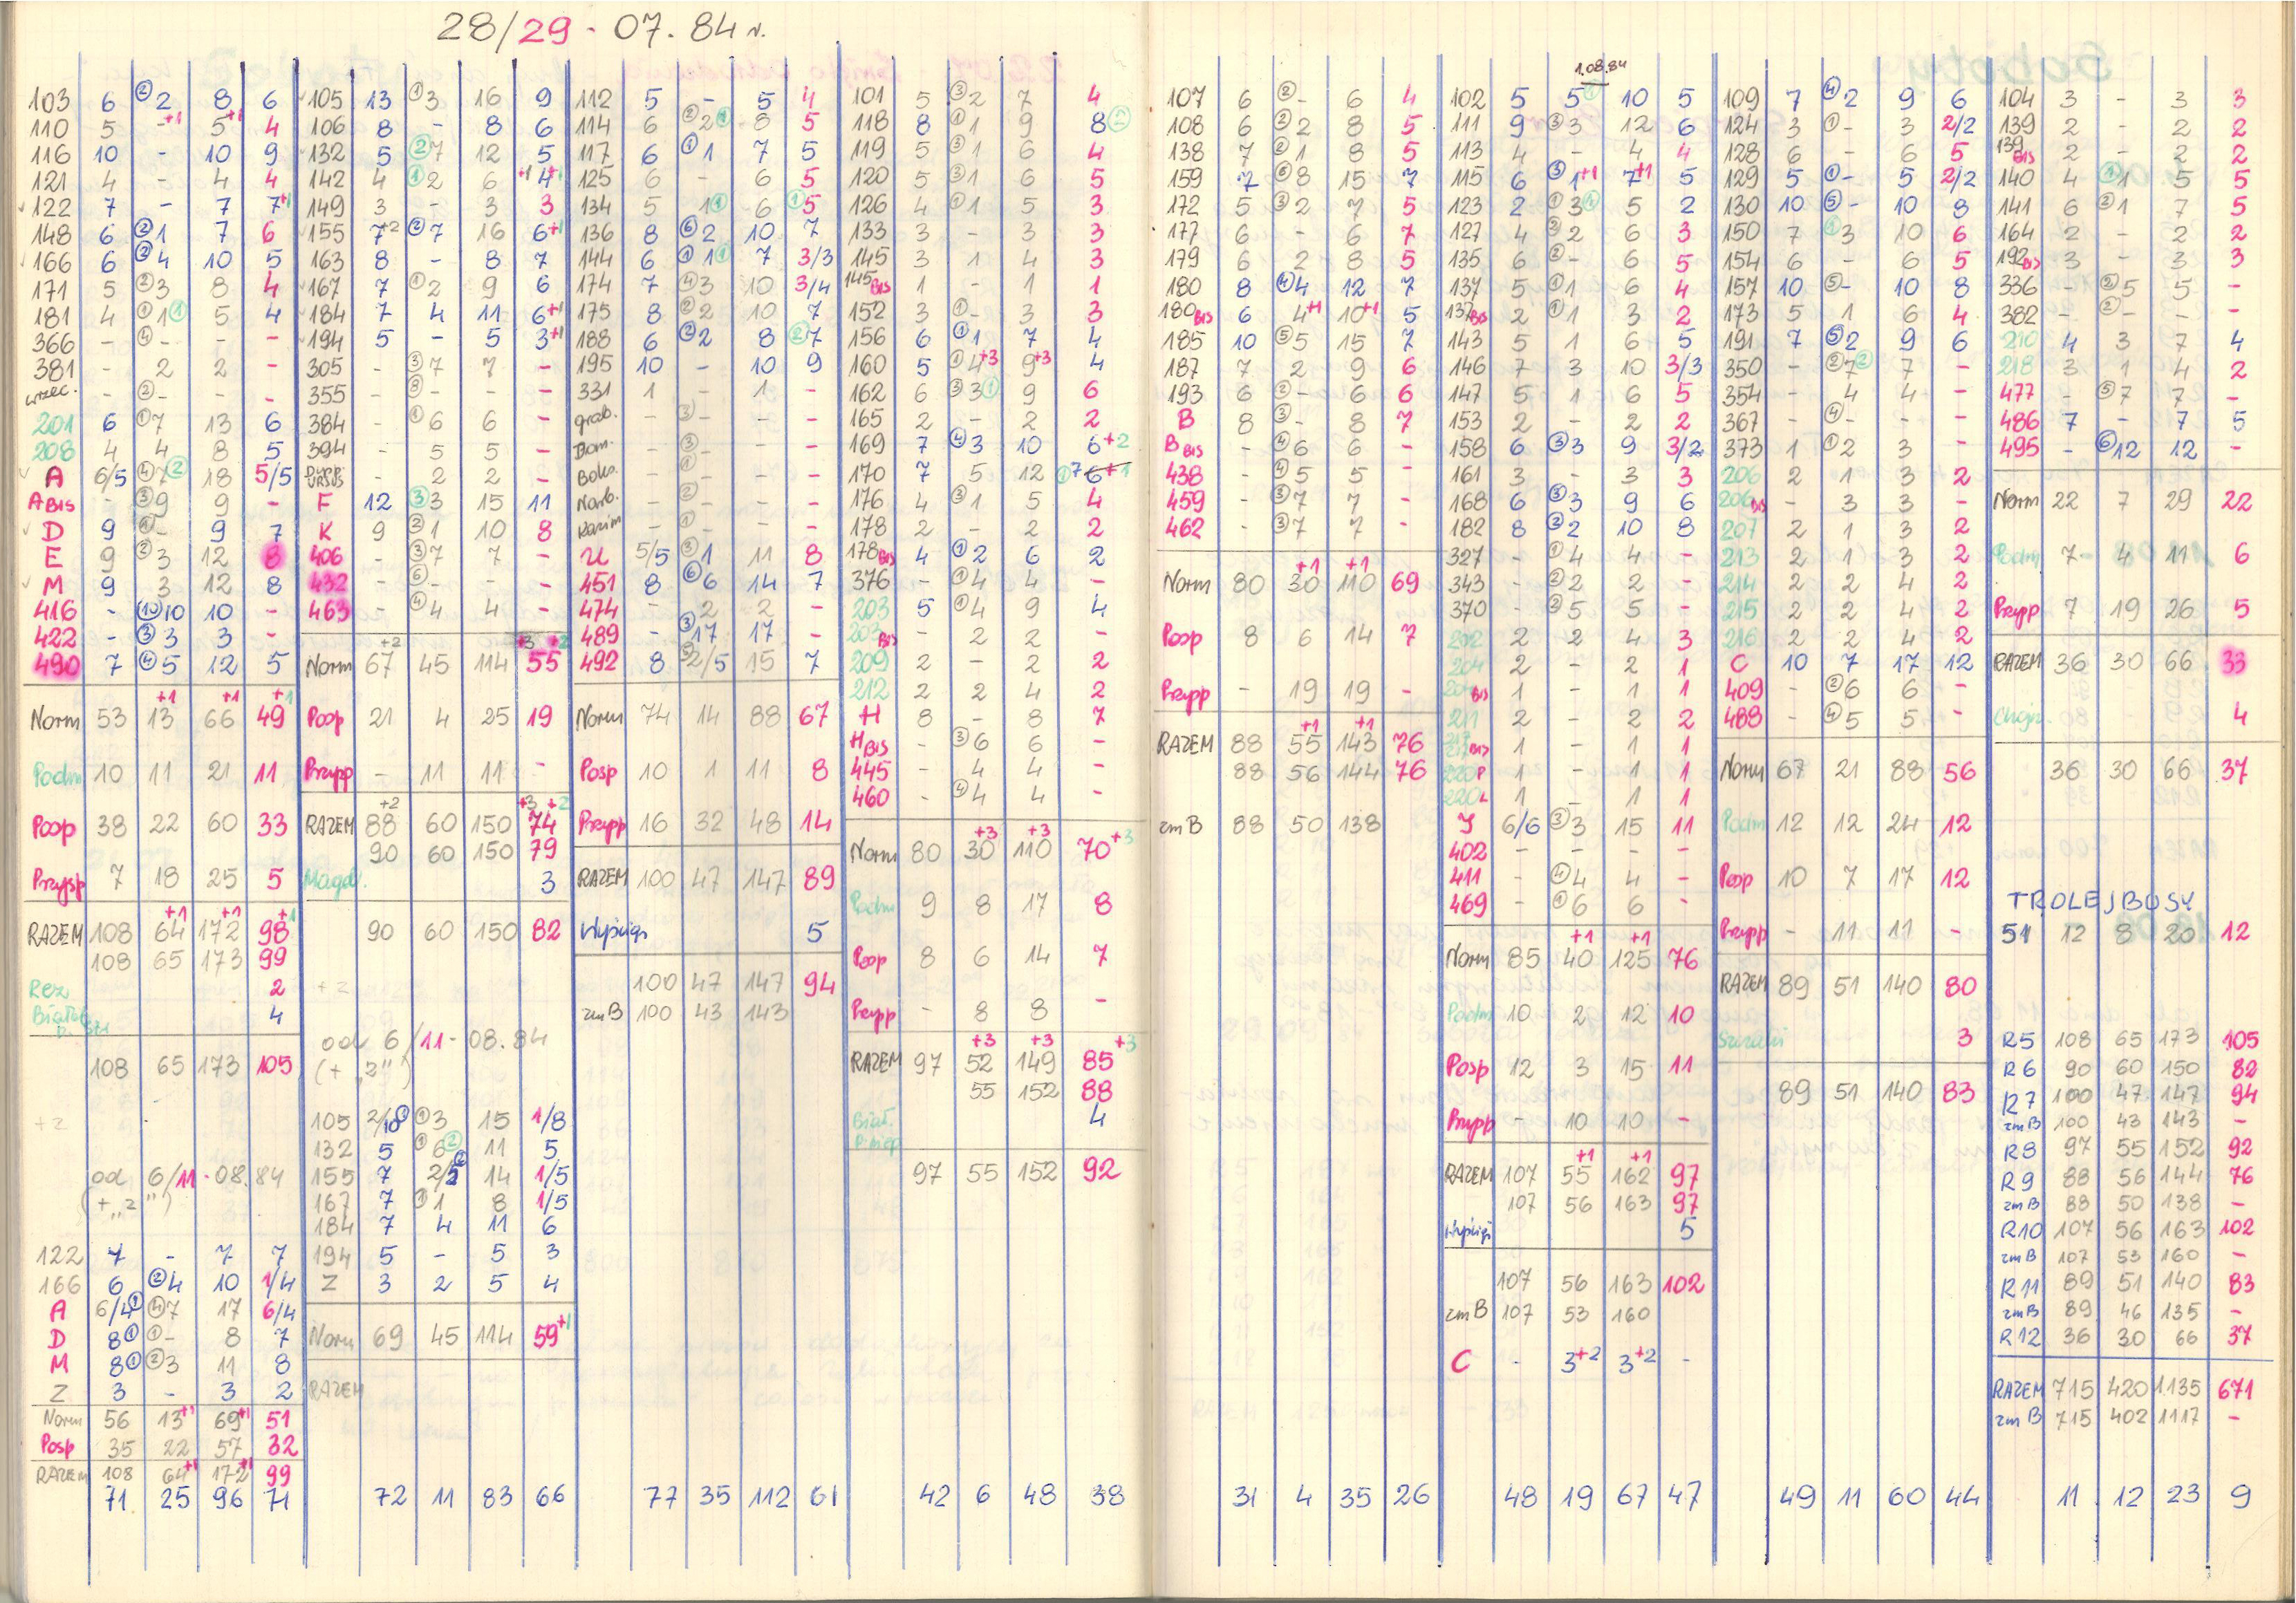 28/29 - 07. 84 r.
103 6 ②2 8 6
110 5 -+1 5+1 4
116 10 - 10 9
121 4 - 4 4
122 7 - 7 7+1
148 6 ②1 7 6
166 6 ②4 10 5
171 5 ②3 8 4
181 4 ①1① 5 4
366 - ④- - -
381 - 2 2 -
wrzec. - ②- - -
201 6 ①7 13 6
208 4 4 8 5
A 6/5 ④7② 18 5/5
A BIS - ③9 9 -
D 9 ①- 9 7
E 9 ②3 12 8
M 9 3 12 8
416 - ⑩10 10 -
422 - ③3 3 -
490 7 ④5 12 5
+1 +1 +1
Norm 53 13 66 49
Podm 10 11 21 11
Posp 38 22 60 33
Przysp 7 18 25 5
+1 +1 +1
RAZEM 108 64 172 98
108 65 173 99
Rez 2
4
108 65 173 105
+2
od 6/11 - 08. 84
(+ „2")
122 7 - 7 7
166 6 ②4 10 1/4
A 6/4① ④7 17 6/4
D 8① ①- 8 7
M 8① ②3 11 8
Z 3 - 3 2
Norm 56 13+1 69+1 51
Posp 35 22 57 32
RAZEM 108 64+1 172+1 99
71 25 96 71
105 13 ①3 16 9
106 8 - 8 6
132 5 ②7 12 5
142 4 ①2 6 +1 4+1
149 3 - 3 3
155 7+2 ②7 16 6+1
163 8 - 8 7
167 7 ①2 9 6
184 7 4 11 6+1
194 5 - 5 3+1
305 - ③7 7 -
355 - ⑧- - -
384 - ①6 6 -
394 - 5 5 -
URSUS - 2 2 -
F 12 ③3 15 11
K 9 ②1 10 8
406 - ③7 7 -
432 - ⑥- - -
463 - ④4 4 -
+2 +3 +2
Norm 67 45 114 55
Posp 21 4 25 19
Przysp - 11 11 -
+2 +3 +2
RAZEM 88 60 150 74
90 60 150 79
Magd. 3
90 60 150 82
+2
od 6/11 - 08. 84
(+ „2")
105 2/10① ①3 15 1/8
132 5 ①6② 11 5
155 7 2/5② 14 1/5
167 7 ①1 8 1/5
184 7 4 11 6
194 5 - 5 3
Z 3 2 5 4
Norm 69 45 114 59+1
RAZEM
72 11 83 66
112 5 - 5 4
114 6 ②2① 8 5
117 6 ①1 7 5
125 6 - 6 5
134 5 1① 6 ①5
136 8 ⑥2 10 7
144 6 ①1① 7 3/3
174 7 ④3 10 3/4
175 8 ②2 10 7
188 6 ②2 8 ②7
195 10 - 10 9
331 1 - 1 -
grab. - ③- - -
Bom. - ③- - -
Boko. - ①- - -
Narb. - ②- - -
Kazim - ①- - -
U 5/5 ③1 11 8
451 8 ⑥6 14 7
474 - 2 2 -
489 - ③17 17 -
492 8 ③2/5 15 7
Norm 74 14 88 67
Posp 10 1 11 8
Przysp 16 32 48 14
RAZEM 100 47 147 89
Wyścigi 5
100 47 147 94
zmB 100 43 143
77 35 112 61
101 5 ③2 7 4
118 8 ①1 9 8②
119 5 ③1 6 4
120 5 ③1 6 5
126 4 ①1 5 3
133 3 - 3 3
145 3 1 4 3
145 BIS 1 - 1 1
152 3 ①- 3 3
156 6 ①1 7 4
160 5 ①4+3 9+3 4
162 6 ③3① 9 6
165 2 - 2 2
169 7 ④3 10 6+2
170 7 5 12 ①7 6+1
176 4 ③1 5 4
178 2 - 2 2
178 BIS 4 ①2 6 2
376 - ①4 4 -
203 5 ①4 9 4
203 BIS - 2 2 -
209 2 - 2 2
212 2 2 4 2
H 8 - 8 7
H BIS - ③6 6 -
445 - 4 4 -
460 - ④4 4 -
+3 +3
Norm 80 30 110 70+3
Podm 9 8 17 8
Posp 8 6 14 7
Przysp - 8 8 -
+3 +3 +3
RAZEM 97 52 149 85
55 152 88
4
97 55 152 92
42 6 48 38
107 6 ②- 6 4
108 6 ②2 8 5
138 7 ②1 8 5
159 7 ⑥8 15 7
172 5 ③2 7 5
177 6 - 6 7
179 6 2 8 5
180 8 ④4 12 7
180 BIS 6 4+1 10+1 5
185 10 ⑤5 15 7
187 7 2 9 6
193 6 ②- 6 6
B 8 ③- 8 7
B BIS - ④6 6 -
438 - ④5 5 -
459 - ③7 7 -
462 - ③7 7 -
+1 +1
Norm 80 30 110 69
Posp 8 6 14 7
Przysp - 19 19 -
+1 +1
RAZEM 88 55 143 76
88 56 144 76
zmB 88 50 138
31 4 35 26
1.08.84
102 5 5 10 5
111 9 ③3 12 6
113 4 - 4 4
115 6 ③1+1 7+1 5
123 2 ①3① 5 2
127 4 ②2 6 3
135 6 ②- 6 5
137 5 ①1 6 4
137 BIS 2 ①1 3 2
143 5 1 6 5
146 7 3 10 3/3
147 5 1 6 5
153 2 - 2 2
158 6 ③3 9 3/2
161 3 - 3 3
168 6 ③3 9 6
182 8 ②2 10 8
327 - ①4 4 -
343 - ②2 2 -
370 - ③5 5 -
202 2 2 4 3
204 2 - 2 1
204 BIS 1 - 1 1
211 2 - 2 2
217 BIS 1 - 1 1
220P 1 - 1 1
220L 1 - 1 1
J 6/6 ②3 15 11
402 - - - -
411 - ④4 4 -
469 - ①6 6 -
+1 +1
Norm 85 40 125 76
Podm 10 2 12 10
Posp 12 3 15 11
Przysp - 10 10 -
+1 +1
RAZEM 107 55 162 97
107 56 163 97
Wyścigi 5
107 56 163 102
zmB 107 53 160
C - 3+2 3+2 -
48 19 67 47
109 7 ④2 9 6
124 3 ①- 3 2/2
128 6 - 6 5
129 5 ①- 5 2/2
130 10 ⑤- 10 8
150 7 ①3 10 6
154 6 - 6 5
157 10 ⑤- 10 8
173 5 1 6 4
191 7 ⑤2 9 6
350 - ②7② 7 -
354 - 4 4 -
367 - ④- - -
373 1 ①2 3 -
206 2 1 3 2
206 BIS - 3 3 -
207 2 1 3 2
213 2 1 3 2
214 2 2 4 2
215 2 2 4 2
216 2 2 4 2
C 10 7 17 12
409 - ②6 6 -
488 - ④5 5 -
Norm 67 21 88 56
Podm 12 12 24 12
Posp 10 7 17 12
Przysp - 11 11 -
RAZEM 89 51 140 80
3
89 51 140 83
49 11 60 44
104 3 - 3 3
139 2 - 2 2
139 BIS 2 - 2 2
140 4 ①1 5 5
141 6 ②1 7 5
164 2 - 2 2
192 BIS 3 - 3 3
336 - ②5 5 -
382 - ②- - -
210 4 3 7 4
218 3 1 4 2
477 - ⑤7 7 -
486 7 - 7 5
495 - ⑥12 12 -
Norm 22 7 29 22
Podm 7 4 11 6
Przysp 7 19 26 5
RAZEM 36 30 66 33
4
36 30 66 37
TROLEJBUSY
51 12 8 20 12
R5 108 65 173 105
R6 90 60 150 82
R7 100 47 147 94
zmB 100 43 143 -
R8 97 55 152 92
R9 88 56 144 76
zmB 88 50 138 -
R10 107 56 163 102
zmB 107 53 160 -
R11 89 51 140 83
zmB 89 46 135 -
R12 36 30 66 37
RAZEM 715 420 1135 671
zmB 715 402 1117 -
11 12 23 9